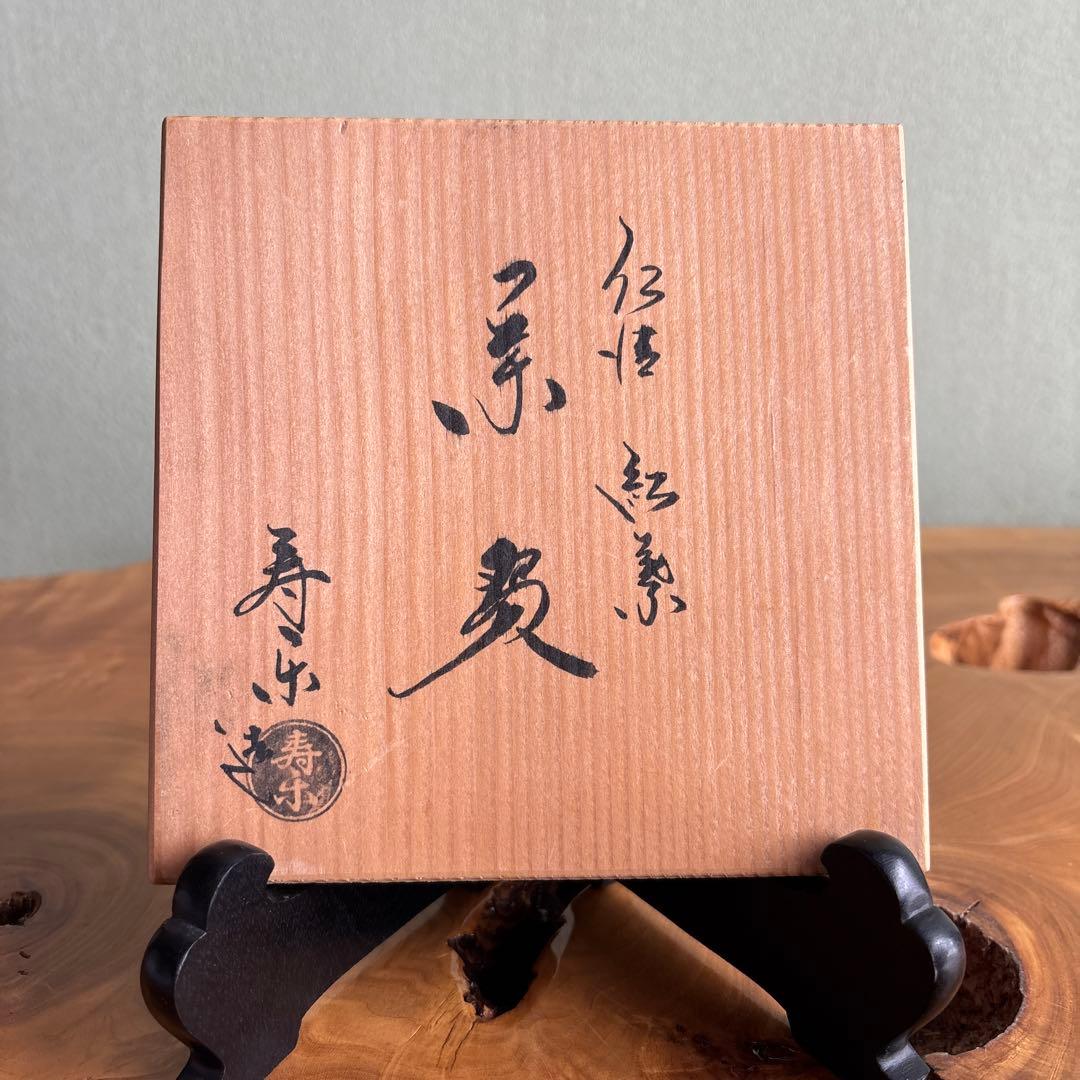 仁清 紅葉
茶碗
寿楽造
寿楽